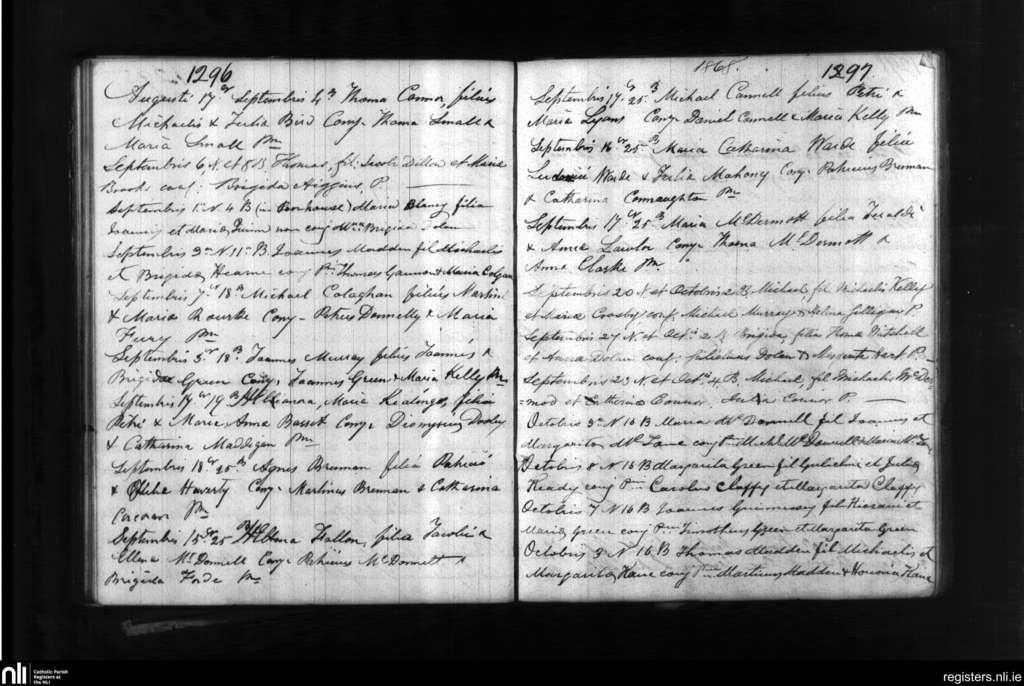 1296
Augusti 17 Septembris 4 B Thoma Connor, filius
Michaelis & Julia Bird Conj. Thoma Small &
Maria Small Pm
Septembris 6 N. et 8 B. Thomas, fil: Jacobi Dillon et Maria
Brooks conj: Brigida Higgins, P.
Septembris 1 N. 4 B (in Poorhouse) Maria Blaney filia
Joannis et Maria Quinn non conj Brigida Dolan
Septembris 3 N 11 B. Joannes Madden fil Michaelis
et Brigida Hearne conj Thomas Gannon & Maria Colgan
Septembris 7 18 B Michael Calaghan filius Martini
& Maria Rourke Conj. Petrus Donnelly & Maria
Fury Pm
Septembris 5 18 B Joannes Murray filius Joannis &
Brigida Green Conj. Joannes Green & Maria Kelly Pm
Septembris 17 19 B Maria filia
Petri & Maria Anna Basset Conj. Dionysius Dooley
& Catharina Maddigan Pm
Septembris 18 25 B Agnes Brennan filia Patricii
& Haverty Conj. Martinus Brennan & Catharina
Pm
Septembris 15 25 B Fallon, filia Jacobi &
Ellena McDonnell Conj. Patricius McDonnell &
Brigida Forde Pm
1868. 1297
Septembris 17 25 B Michael Connell filius Petri &
Maria Lyons Conj. Daniel Connell & Maria Kelly Pm
Septembris 16 25 B Maria Catharina Warde filia
Warde & Julia Mahony Conj. Patricius Brennan
& Catharina Connaughton Pm
Septembris 17 25 B Maria McDermott filia
& Anna Lawlor Conj. Thoma McDermott &
Anna Clarke Pm.
Septembris 20 N. et Octobris 2 B, Michael, fil Michaelis Kelley
et Maria Crosby conj. Michael Murray & Gilligan P.
Septembris 27 N. et Oct. 2 B Brigida, filia Thoma Mitchell
et Anna Dolan conj: Dolan & P.
Septembris 23 N. et Oct. 4 B. Michael, fil Michaelis McDer
mod et Catherina Connor, Connor P.
Octobris 3 N 16 B Maria McDonnell fil Joannis et
Margarita conj McDonnell & Maria
Octobris 8 N 16 B Margarita Green fil Gulielmi et Julia
Ready conj Carolus Claffy et Margarita Claffy
Octobris 7 N 16 B Joannes Guinnessy fil Kierani et
Maria Green conj Timothy Green et Margarita Green
Octobris 3 N 16 B Thomas Madden fil Michaelis et
Margarita Kane conj Martinus Madden & Honoria Kane
nli
Catholic Parish
Registers at
the NLI
registers.nli.ie